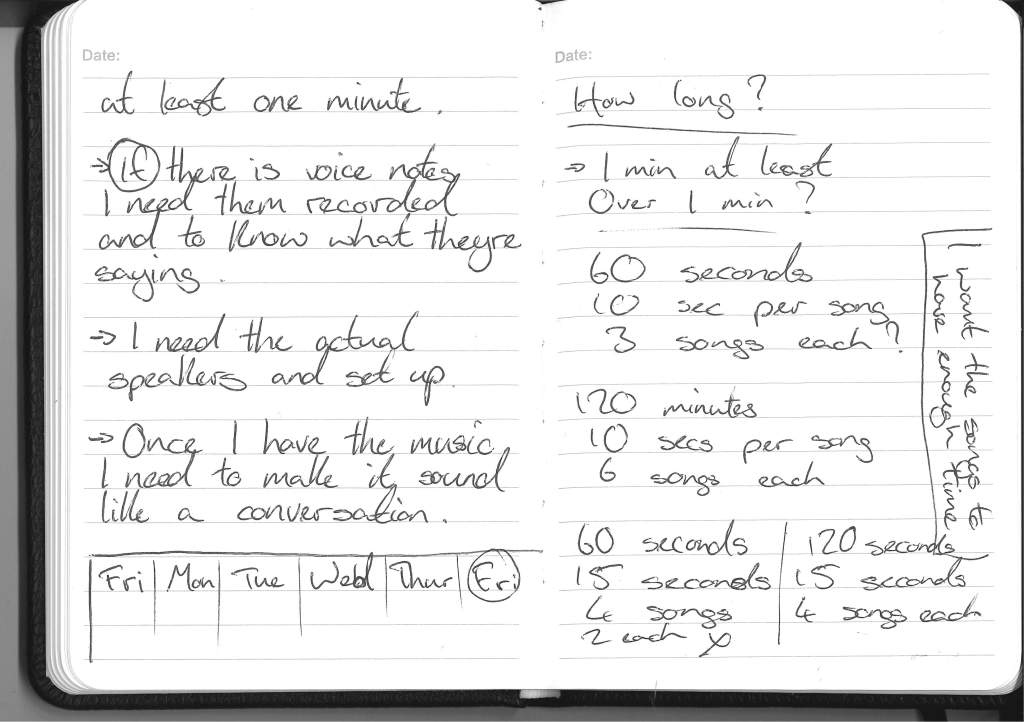 Date:
at least one minute.
→ If there is voice notes,
I need them recorded
and to know what theyre
saying.
→ I need the actual
speakers and set up.
→ Once I have the music,
I need to make it sound
like a conversation.
Fri Mon Tue Wed Thur Fri
Date:
How long?
→ 1 min at least
Over 1 min?
60 seconds
10 sec per song
3 songs each?
120 minutes
10 secs per song
6 songs each
I want the songs to
have enough time
60 seconds
15 seconds
4 songs
2 each x
120 seconds
15 seconds
4 songs each